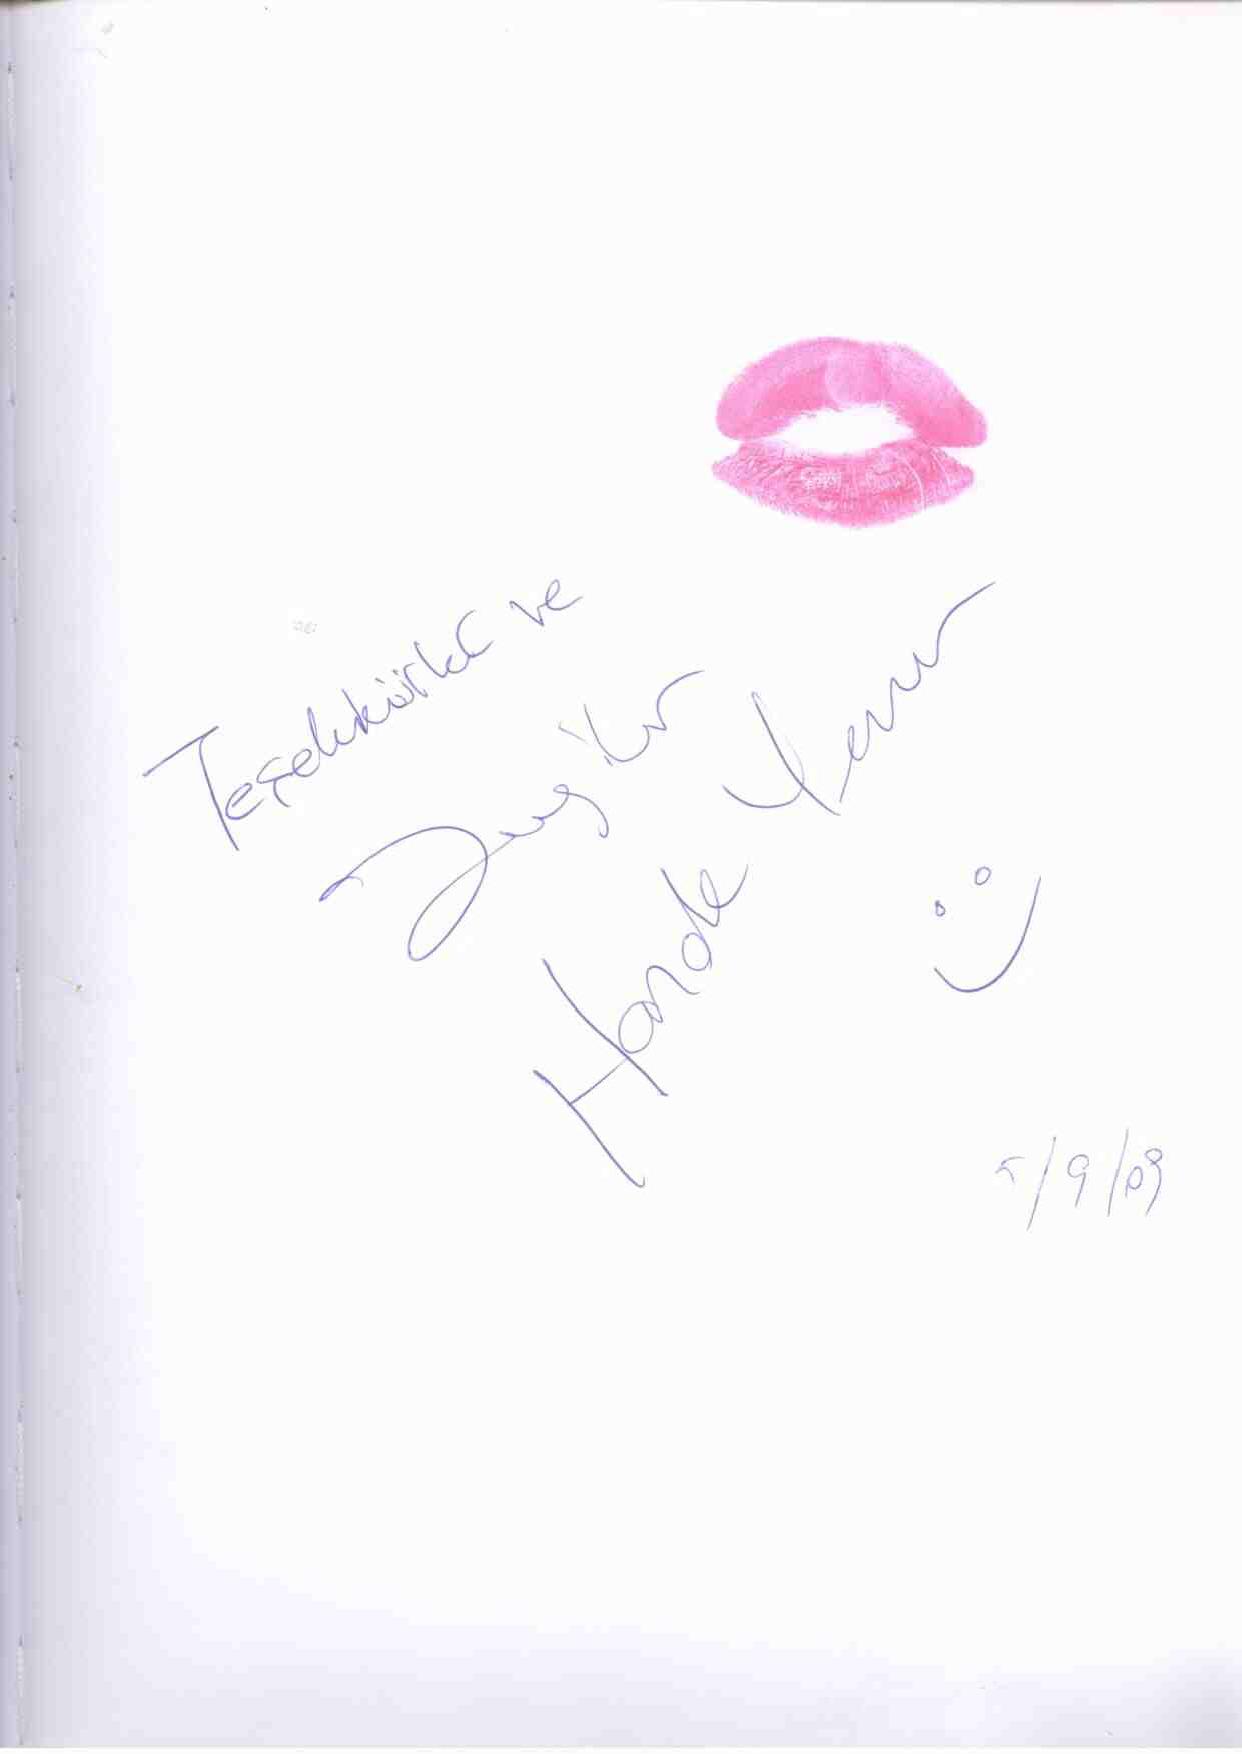 Teşekkürler ve
Sevgiler
Hande Yener
5/9/09